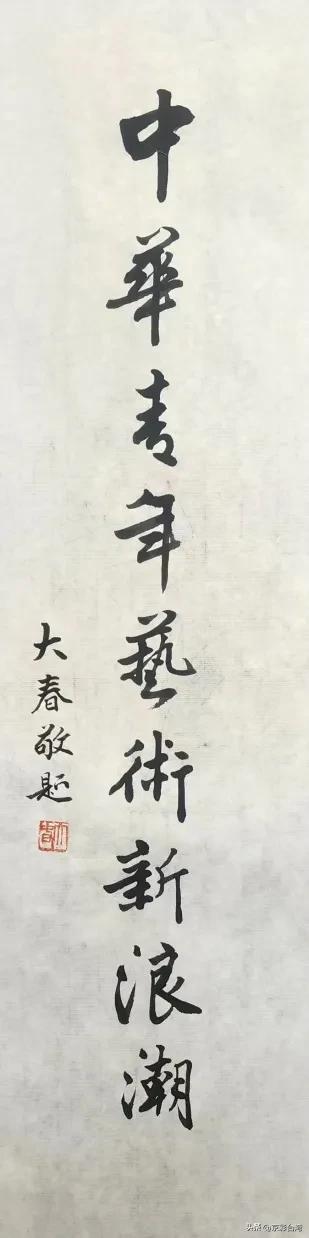 中華青年藝術新浪潮
大春敬題
大春
头条@京彩台湾